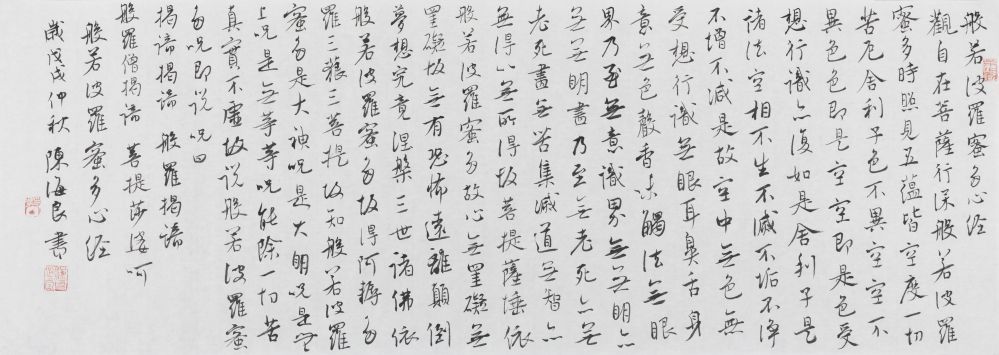 般若波羅蜜多心经
觀自在菩薩行深般若波羅
蜜多時照見五蘊皆空度一切
苦厄舍利子色不異空空不
異色色即是空空即是色受
想行識亦復如是舍利子是
諸法空相不生不滅不垢不淨
不增不減是故空中無色無
受想行識无眼耳鼻舌身
意无色聲香味觸法无眼
界乃至無意識界无无明亦
無无明盡乃至无老死亦无
老死盡无苦集滅道无智亦
無得以无所得故菩提薩埵依
般若波羅蜜多故心无罣礙无
罣礙故无有恐怖遠離顛倒
夢想究竟涅槃三世諸佛依
般若波羅蜜多故得阿耨多
羅三藐三菩提故知般若波羅
蜜多是大神呪是大明呪是无
上呪是无等等呪能除一切苦
真實不虛故説般若波羅蜜
多呪即説呪曰
揭諦揭諦 般羅揭諦
般羅僧揭諦 菩提莎婆呵
般若波羅蜜多心经
歲戊戌仲秋 陳海良書